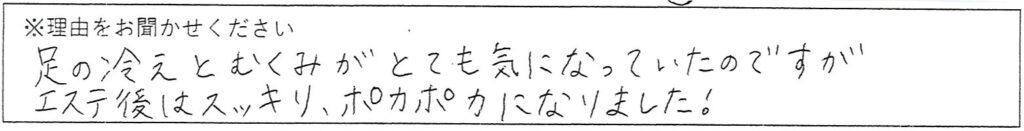 ※理由をお聞かせください
足の冷えとむくみがとても気になっていたのですが
エステ後はスッキリ、ポカポカになりました!